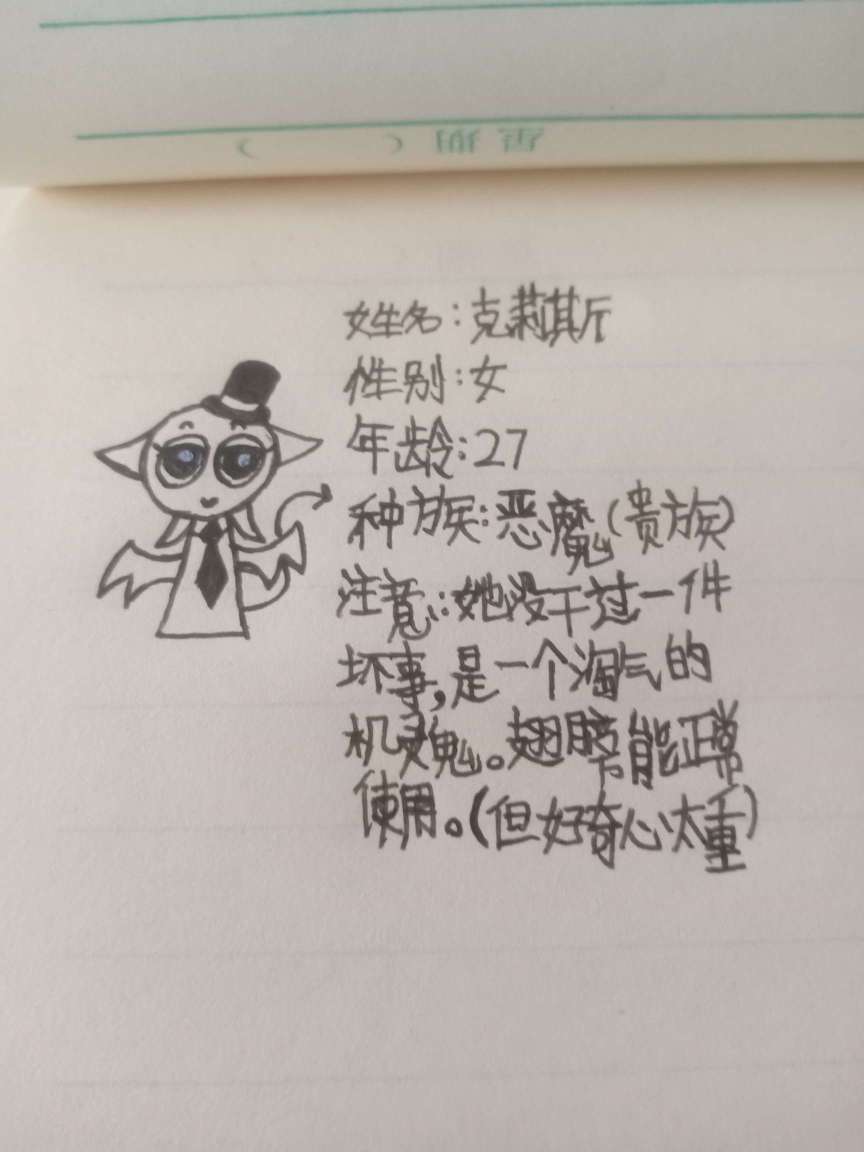 星期（ ）
姓名：克莉斯
性别：女
年龄：27
种族：恶魔（贵族）
注意：她没干过一件
坏事，是一个淘气的
机灵鬼。翅膀能正常
使用。（但好奇心太重）